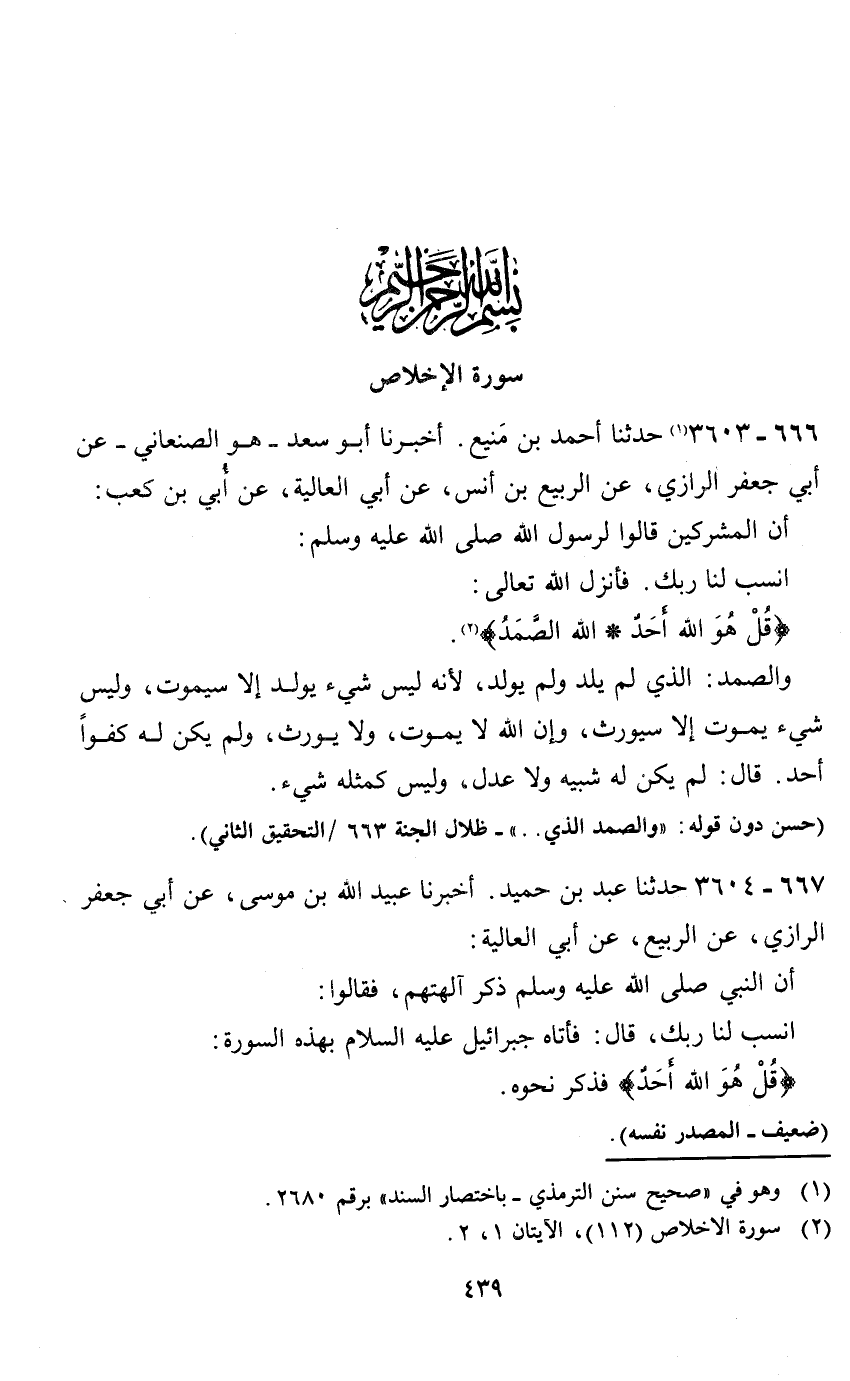 بسم الله الرحمن الرحيم
سورة الإخلاص
٦٦٦ - ٣٦٠٣(١) حدثنا أحمد بن مَنيع. أخبرنا أبو سعد - هو الصنعاني - عن
أبي جعفر الرازي، عن الربيع بن أنس، عن أبي العالية، عن أُبي بن كعب:
أن المشركين قالوا لرسول الله صلى الله عليه وسلم:
انسب لنا ربك. فأنزل الله تعالى:
﴿قُلْ هُوَ الله أَحَدٌ * الله الصَّمَدُ﴾(٢).
والصمد: الذي لم يلد ولم يولد، لأنه ليس شيء يولد إلا سيموت، وليس
شيء يموت إلا سيورث، وإن الله لا يموت، ولا يورث، ولم يكن له كفواً
أحد. قال: لم يكن له شبيه ولا عدل، وليس كمثله شيء.
(حسن دون قوله: «والصمد الذي..» - ظلال الجنة ٦٦٣ /التحقيق الثاني).
٦٦٧ - ٣٦٠٤ حدثنا عبد بن حميد. أخبرنا عبيد الله بن موسى، عن أبي جعفر
الرازي، عن الربيع، عن أبي العالية:
أن النبي صلى الله عليه وسلم ذكر آلهتهم، فقالوا:
انسب لنا ربك، قال: فأتاه جبرائيل عليه السلام بهذه السورة:
﴿قُلْ هُوَ الله أَحَدٌ﴾ فذكر نحوه.
(ضعيف - المصدر نفسه).
(١) وهو في «صحيح سنن الترمذي - باختصار السند» برقم ٢٦٨٠.
(٢) سورة الاخلاص (١١٢)، الآيتان ١، ٢.
٤٣٩